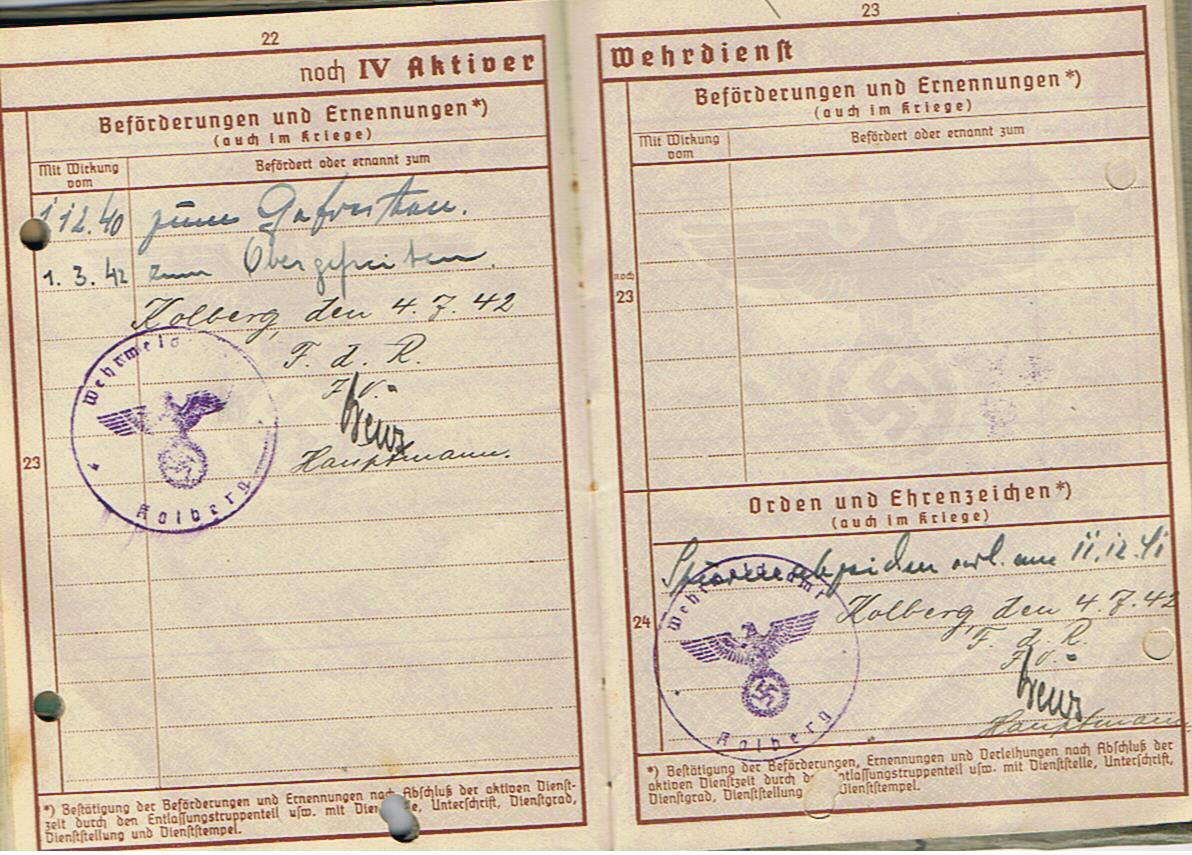 22
noch IV Aktiver
Beförderungen und Ernennungen*)
(auch im Kriege)
Mit Wirkung vom
Befördert oder ernannt zum
1 12. 40 zum Gefreiten.
1. 3. 42 zum Obergefreiten.
Kolberg, den 4. 7. 42
F. d. R.
J. V.
Hauptmann.
Wehrmeld
Kolberg
23
*) Bestätigung der Beförderungen und Ernennungen nach Abschluß der aktiven Dienst-
zeit durch den Entlassungstruppenteil usw. mit Dienststelle, Unterschrift, Dienstgrad,
Dienststellung und Dienststempel.
23
Wehrdienst
Beförderungen und Ernennungen*)
(auch im Kriege)
Mit Wirkung vom
Befördert oder ernannt zum
noch
23
Orden und Ehrenzeichen*)
(auch im Kriege)
am 11.12.41
Kolberg, den 4. 7. 42
F. d. R.
J. V.
Hauptmann
24
Kolberg
*) Bestätigung der Beförderungen, Ernennungen und Verleihungen nach Abschluß der
aktiven Dienstzeit durch den Entlassungstruppenteil usw. mit Dienststelle, Unterschrift,
Dienstgrad, Dienststellung Dienststempel.